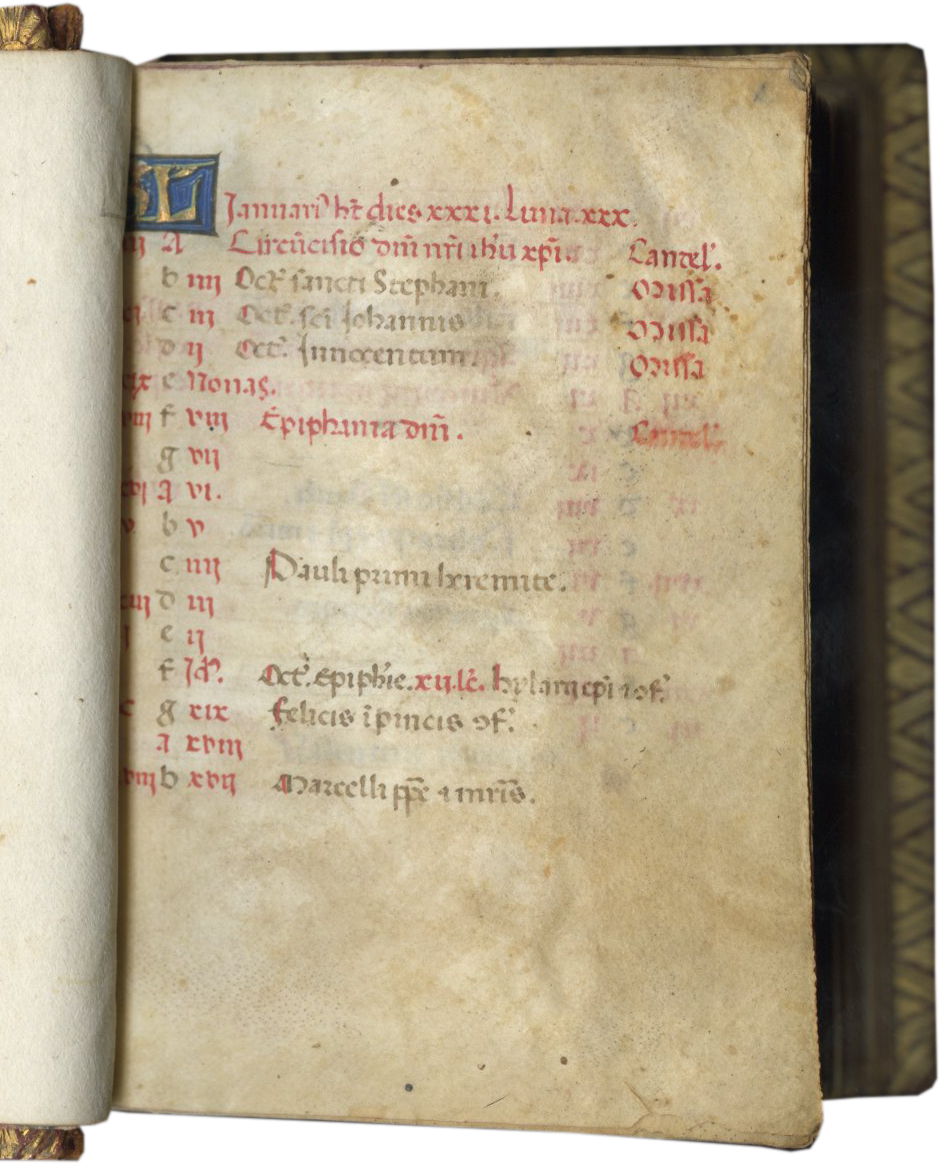 KL Januari' ht dies xxxi. Luna. xxx.
iii A Circūcisio dn̄i nr̄i ihu xp̄i. Cantel'.
b iiii Oct' sancti Stephani. O missa
c iii Oct'. sc̄i Johannis O missa
d ii Oct'. Innocentum. O missa
c Nonas.
f viii Epiphania dn̄i. Cantel'.
g vii
A vi.
v. b v
c iiii Pauli primi heremite.
d iii
e ii
f Id'. Oct'. epiph'ie. xii. lc̄. hylarii ep̄i
g xix Felicis ī pincis
a xviii
b xvii Marcelli pp̄e 7 mr̄is.